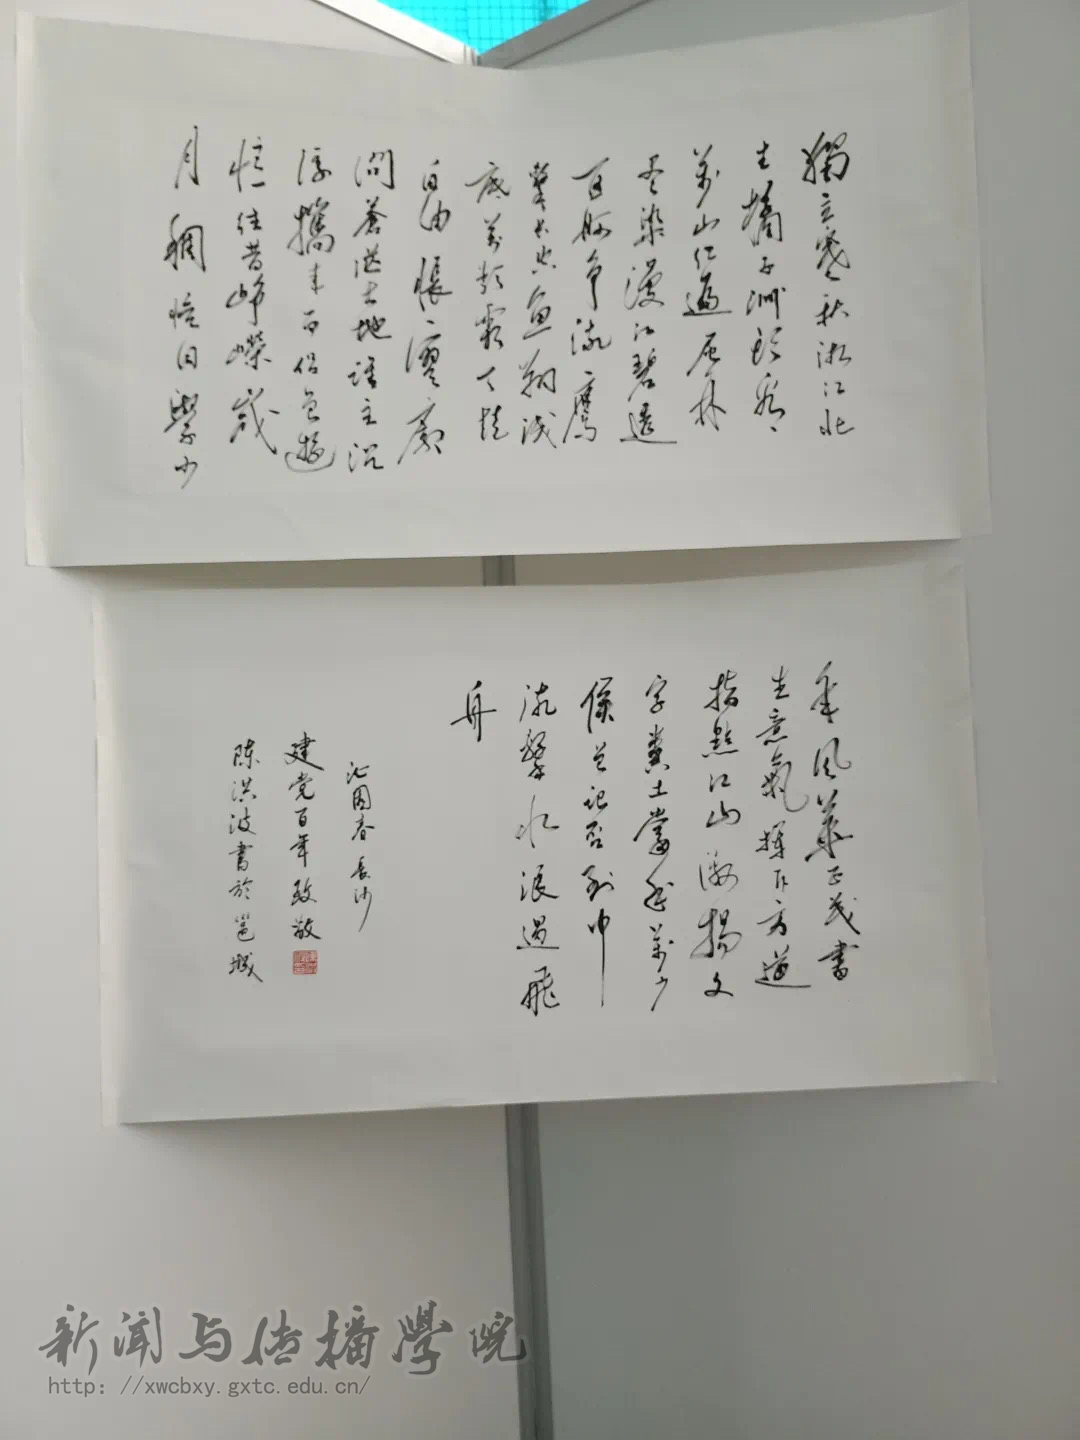 獨立寒秋湘江北
去橘子洲頭看
萬山红遍层林
尽染漫江碧透
百舸争流鹰
擊长空鱼翔浅
底萬類霜天競
自由悵寥廓
问蒼茫大地誰主沉
浮攜来百侣曾遊
憶往昔峥嵘歲
月稠恰同學少
年風華正茂書
生意氣揮斥方遒
指點江山激揚文
字糞土當年萬户
侯曾記否到中
流擊水浪遏飛
舟
沁園春 長沙
建党百年致敬
陈洪波書於邕城
新闻与传播學院
http://xwcbxy.gxtc.edu.cn/